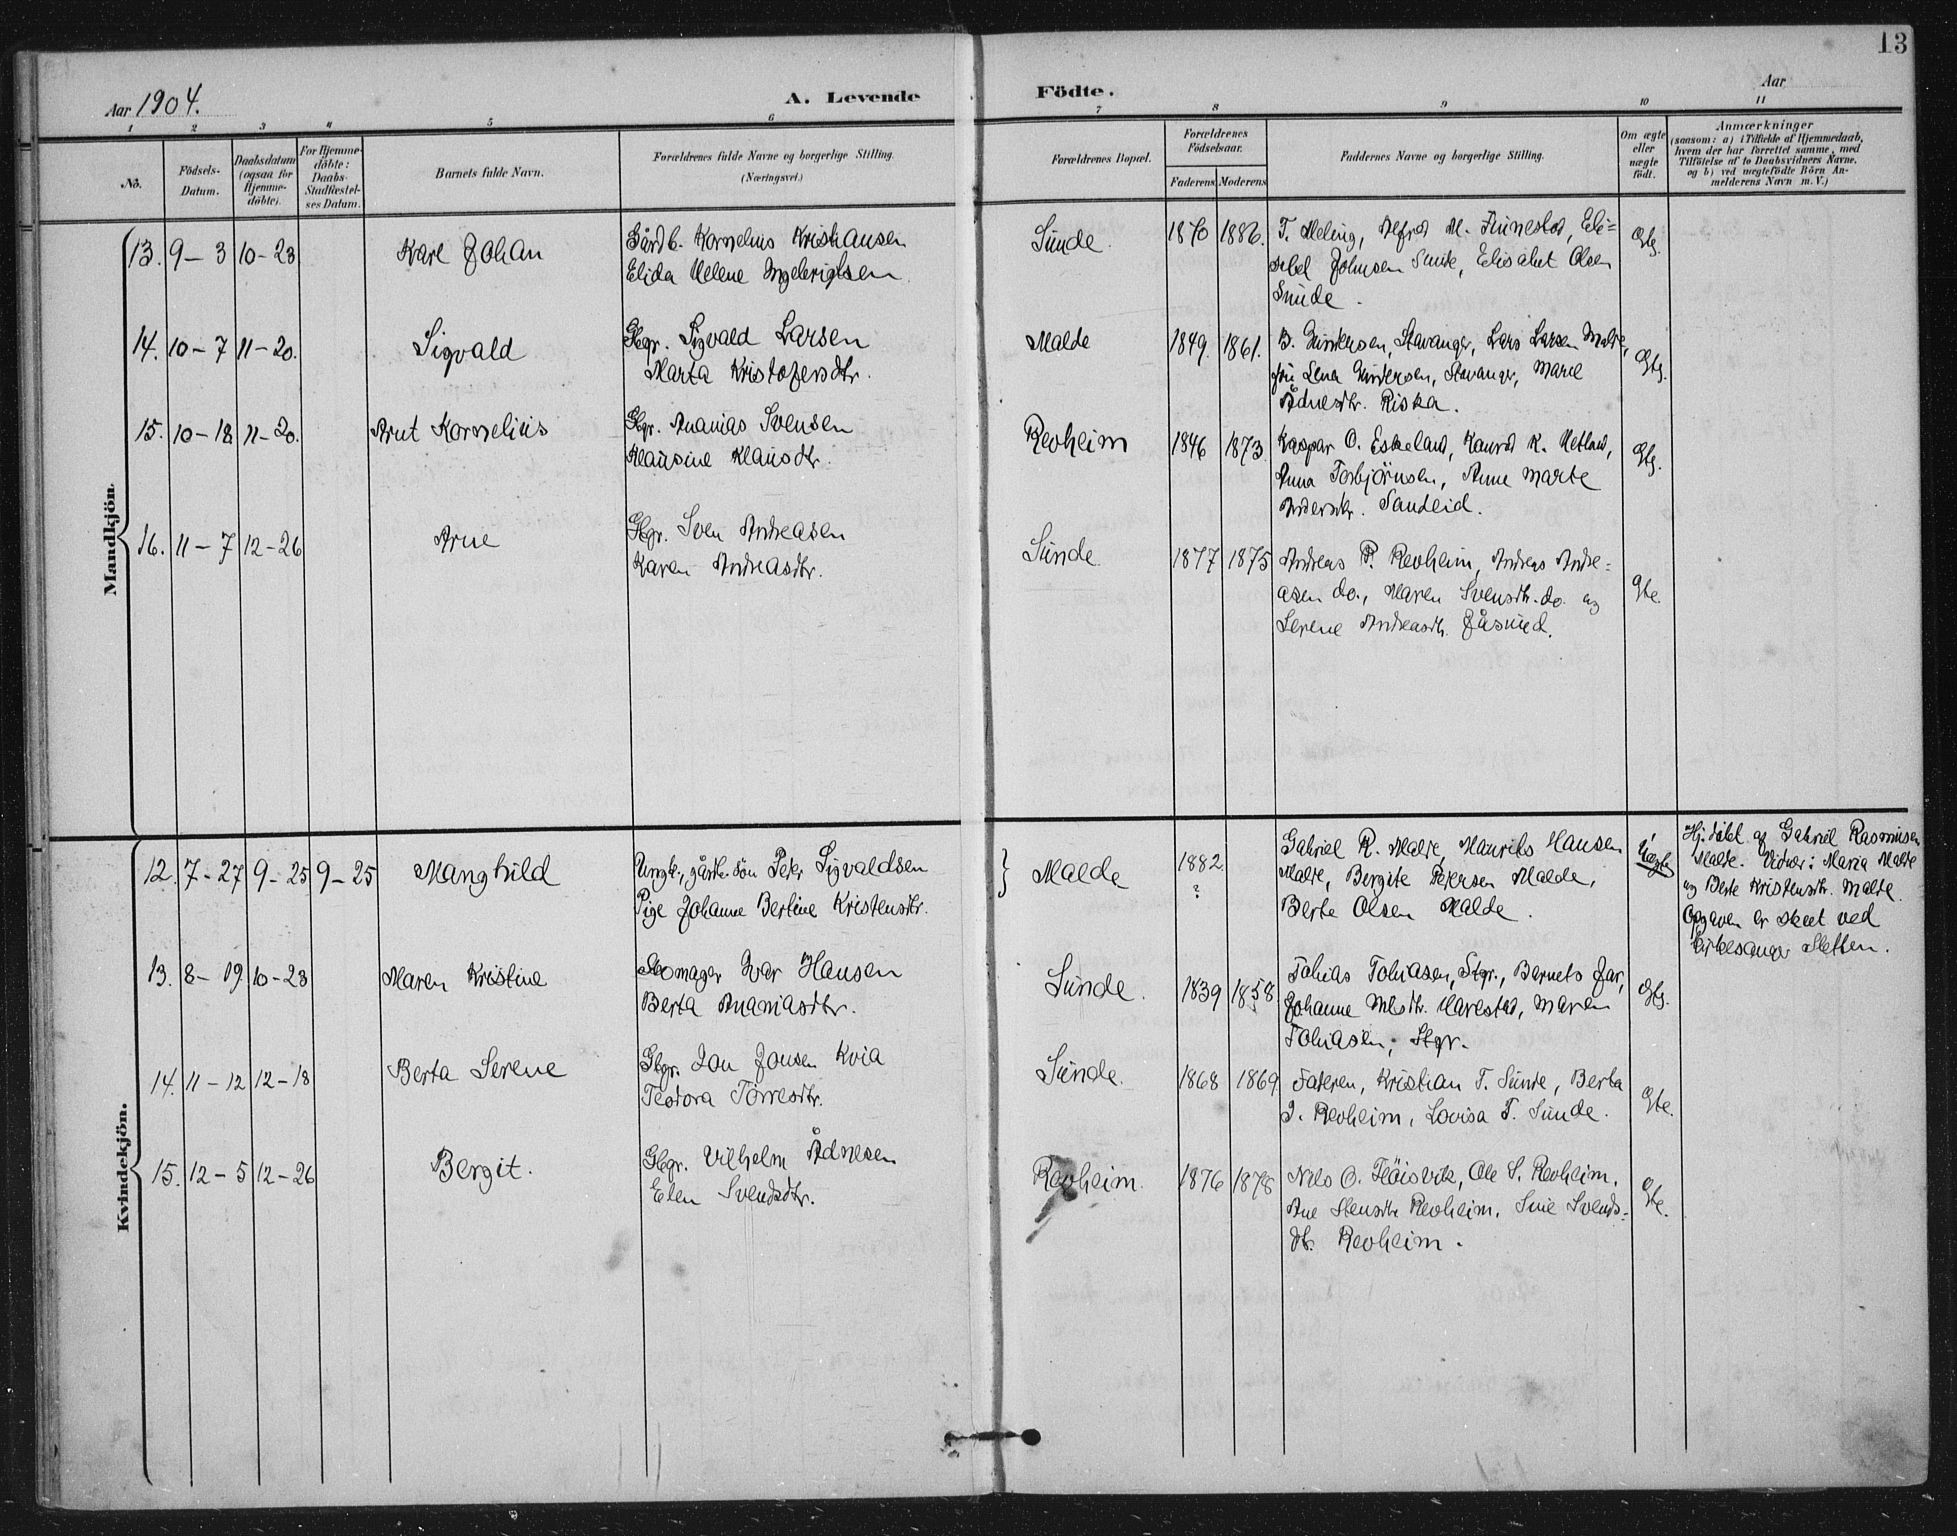 13
Aar 1904.
A. Levende Födte.
Aar
1 2 3 4 5 6 7 8 9 10 11
No.
Födsels-Datum.
Daabsdatum (ogsaa for Hjemme-döbte).
For Hjemme-döbte: Daabs-Stadfæstel-ses Datum.
Barnets fulde Navn.
Forældrenes fulde Navne og borgerlige Stilling. (Næringsvei.)
Forældrenes Bopæl.
Forældrenes Födselsaar.
Faderens Moderens
Faddernes Navne og borgerlige Stilling.
Om ægte eller uægte födt.
Anmærkninger
(saasom: a) i Tilfælde af Hjemmedaab, hvem der har forrettet samme, med Tilföielse af to Daabsvidners Navne, og b) ved uægtefödte Börn An-melderens Navn m. V.)
Mandkjön.
13. 9-3 10-23 Karl Johan
Gårdb. Kornelius Kristiansen
Elida Helene Ingebrigtsen
Sunde. 1870 1886.
T. Meling, M. Finnestad, Eli=
Johnsen Sunde, Elisabet Olsen
Sunde.
Gtg.
14. 10-7 11-20. Sigvald
Gbgr. Sigvald Larsen
Marta Kristofersdtr.
Malde 1849. 1861.
B. Gundersen, Stavanger, Lars Larsen Malde,
fru Lena Gundersen, Stavanger, Marie
Ådnesdtr. Riska.
Gtg.
15. 10-18 11-20. Arnt Kornelius
Gbgr. Ananias Svensen
Klausine Klausdtr.
Revheim 1846 1873.
Kaspar O. Eskeland, Konrad K. Hetland,
Anna Torbjörnsen, Anne Marte
Andersdtr. Sandeid.
Gtg.
16. 11-7 12-26 Arne
Gbgr. Sven Andreasen
Karen Andreasdtr.
Sunde 1877 1875
Andreas P. Revheim, Andreas Andre=
asen do., Maren Svensdtr. do. og
Serene Andreasdtr. Jåsund.
Gte.
Kvindekjön.
12. 7-27 9-25 9-25 Manghild
Ungk., gårdm.sön Peter Sigvaldsen
Pige Johanne Bertine Kristensdtr.
} Malde 1882. ?
Gabriel R. Malde, Maurits Hansen
Malde, Bergite Petersen Malde,
Berte Olsen Malde.
Uægte
Hj.döbt af Gabriel Rasmusen
Malde. Vidner: Maria Malde
og Berte Kristensdtr. Malde.
Opgaven er skeet ved
kirkesanger Sletten.
13. 8-19 10-23 Maren Kristine
Skomager Ivar Hansen
Berta Ananiasdtr.
Sunde. 1839 1858.
Tobias Tobiasen, Stgr., Barnets far,
Johanne Harestad, Maren
Tobiasen, Stgr.
Gtg.
14. 11-12 12-18 Berta Serene
Gbgr. Jon Jonsen Kvia
Teodora Torresdtr.
Sunde. 1868 1869
Faderen, Kristian T. Sunde, Berta
J. Revheim, Lovisa T. Sunde.
Gte.
15. 12-5 12-26 Bergit.
Gbgr. Vilhelm Ådnesen
Elen Svendsdtr.
Revheim. 1876 1878
Nils O. Flöisvik, Ole S. Revheim,
Ane Stensdtr. Revheim, Sine Svends=
dtr. Revheim.
Gte.